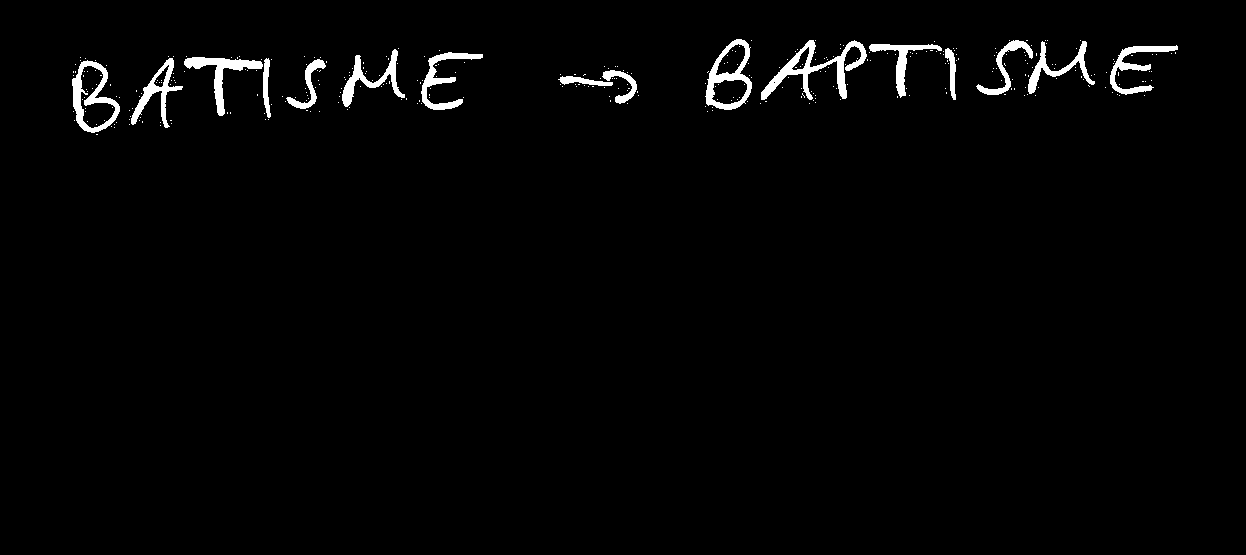 BATISME → BAPTISME